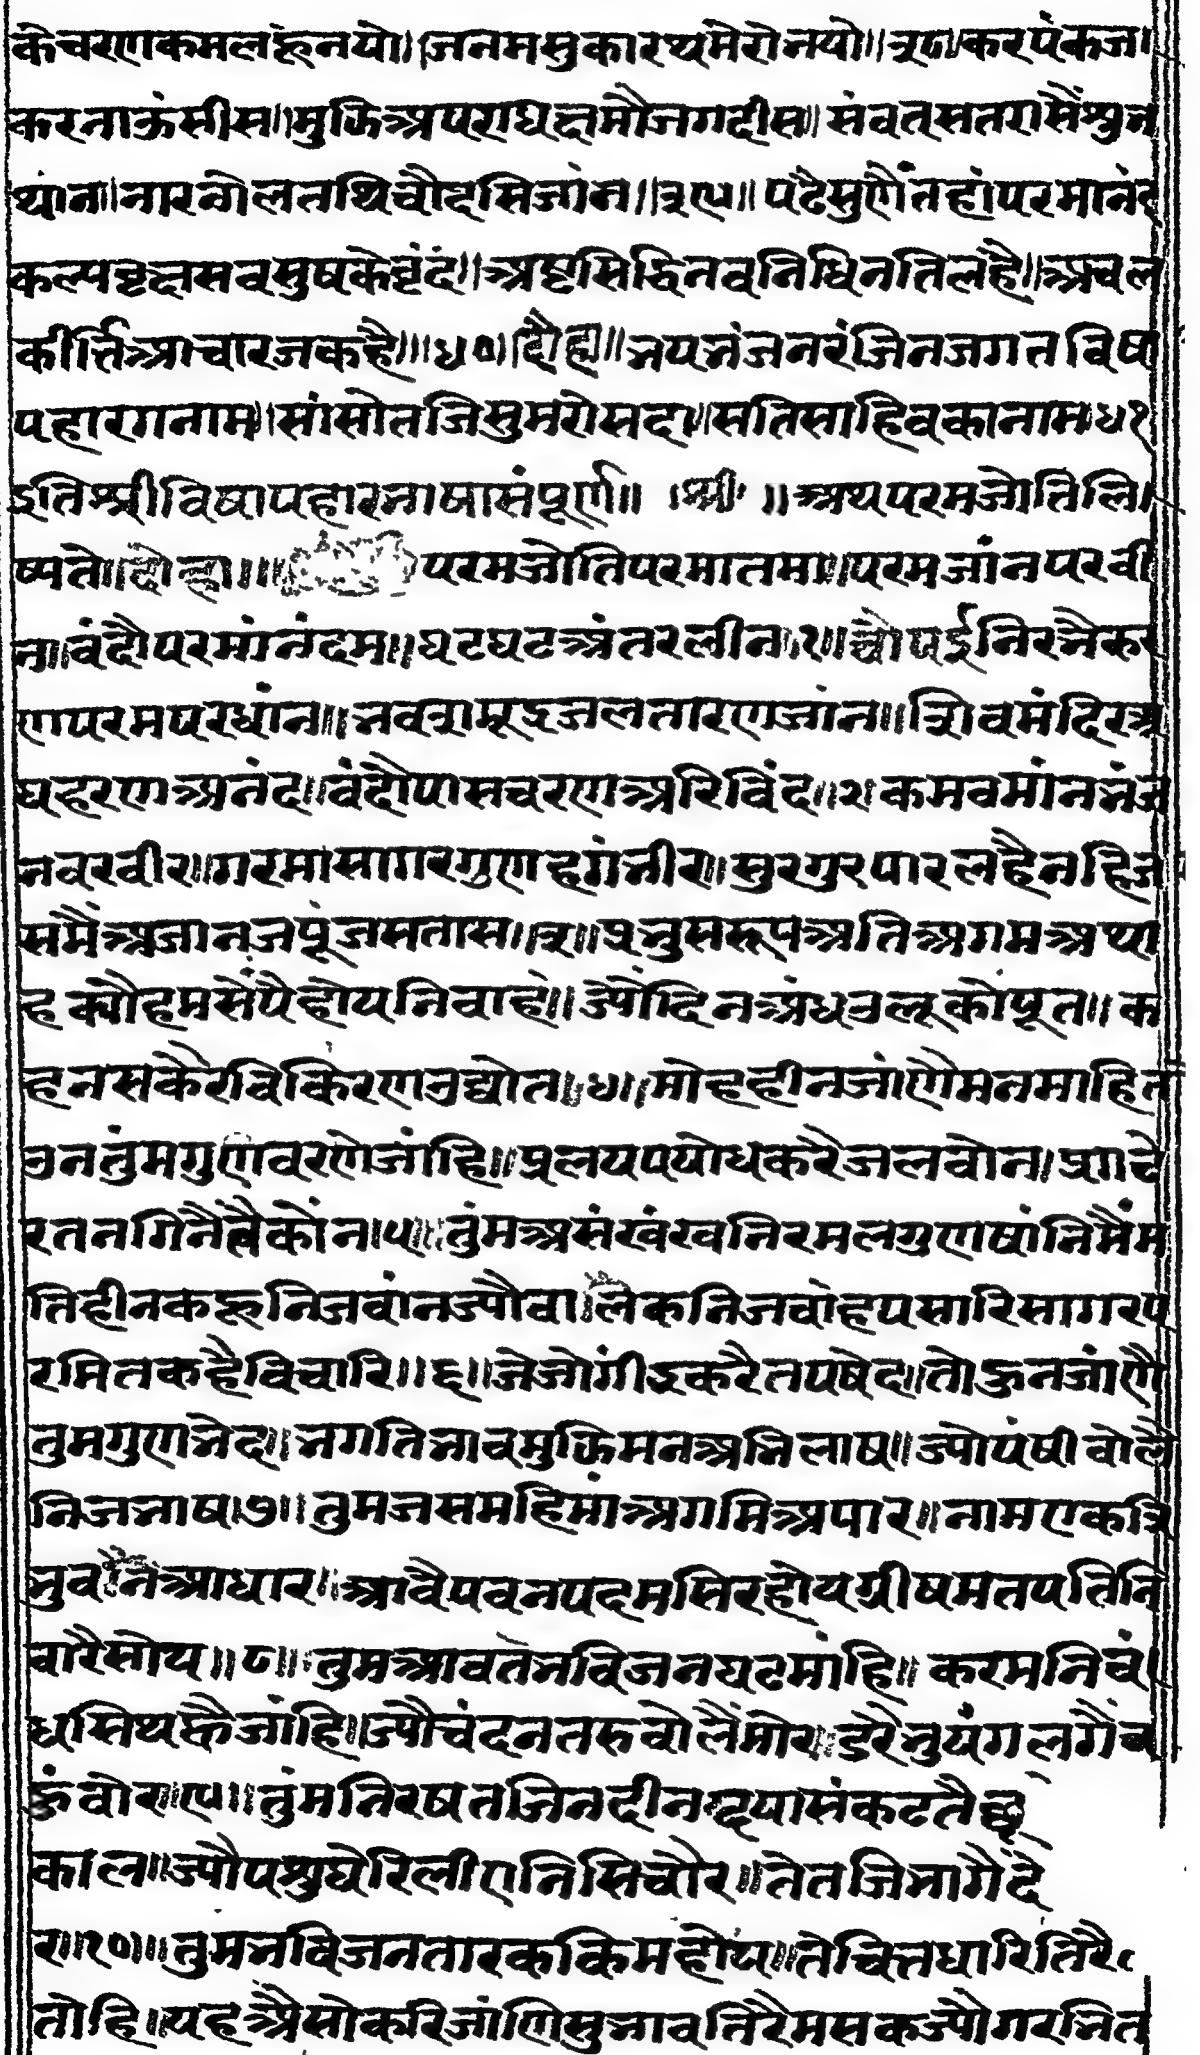 केचरणकमलहूंनयो।।जनमसुकारथमेरोनयो।।३८।करपंकजा
करनाऊंसीस।।मुझिअपराधक्षमौजगदीस।।संवतसतरासैंशुन
थांन।नारनोलतथिचौदसिजांन।।३९।।पढैसुणैंतहांपरमानंद
कल्पवृक्षसवसुषकेवृंदं।।अष्टसिद्धिनवनिधिनतिलहै।।अचल
कीर्त्तिआचारजकहै।।।४०।दौहा।।भयभंजनरंजिनजगतविषा
पहारगनाम।।सांसोतजिसुमरोसदा।।सतिसाहिवकानाम।४१
इतिश्रीविषापहारभाषासंपूर्ण।।।श्री।।।अथपरमजोतिलि
ष्यते।।दोहा।।।परमजोतिपरमातमा।।परमजांनपरवी
न।।वंदौपरमांनंदम।।घटघटअंतरलीन।१।।चौपईनिरभैकर
णपरमपरधांन।।।भवसमूद्रजलतारणजांन।।।शिवमंदिरअ
घहरणअनंद।।वंदौपासचरणअरिविंद।।२।कमवमांनभंज
नवरवीर।।गरमासागरगुणहगंभीर।।सुरगुरपारलहैनहिज
समैंअजानजपूंजसतास।।३।।प्रभुसरूपअतिअगमअथा
हक्यौहमसेंपैहोयनिवाहे।।ज्यौंदिनअंधउलूकोपूत।।क
हनसकैरविकिरणउद्योत।४।।मोहहीनजांणैमनमाहित
उनतुंमगुणवरणेजांहि।।प्रलयपयोधकरैजलवोन।प्रगटे
रतनगिनैत्वैकोंन।५।।तुंमअसंखंखनिरमलगुणषांनिमैंम
तिहीनकहूनिजवांनज्यौवालकनिजवांहपसारिसागरप
रमितकहैविचारि।।६।।जेजोगींद्रकरैतपषेद।।तोऊनजांणै
तुमगुणभेद।।भगतिभावमुझिमनअभिलाष।।ज्योपंषीवोलै
निजभाष।७।।तुमजसमहिमांअगमिअपार।।नामएकत्रि
भुवनआधार।।आवैपवनपदमसिरहोयग्रीषमतपतिनि
वारैसोय।।८।।तुमआवतभविजनघटमांहि।।करमनिवं
धसिथऊजांहि।।ज्यौचंदनतरुवोलैंमोर।डरैभुयंगलगैंच
ऊंवोर।।९।।तुंमनिरषतजिनदीनदयासंकटतैछू
काल।।ज्यौपशुघेरिलीएनिसिचौर।।तेतजिभागैंदे
र।।१०।।तुमभविजनतारककिमहोय।।तेचित्तधारितिरै
तोहि।।यहअैसोकरिजांणिसुभावतिरैमसकज्यौगरभित